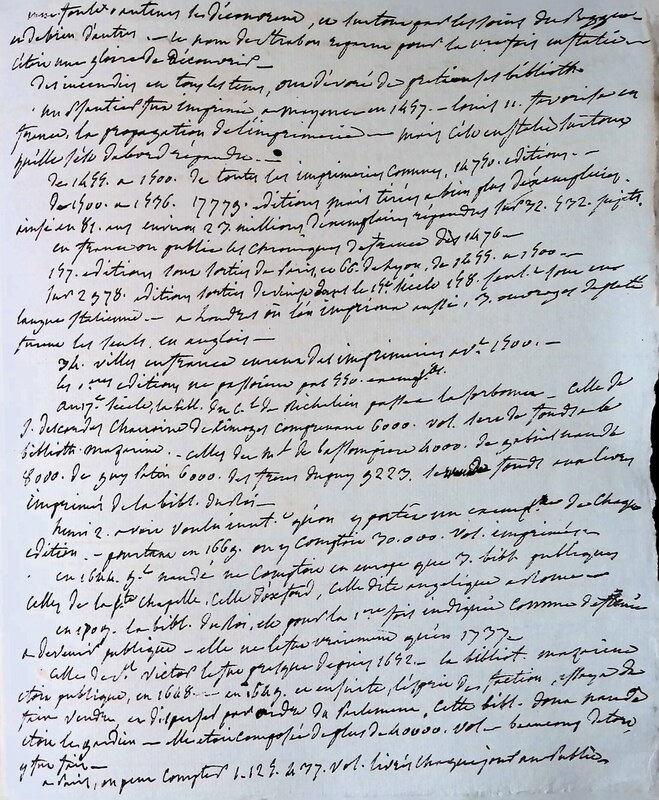 en de bien d'autres. — le nom de Strabon reparue pour la 1ere fois en Italie —
c'étoit une gloire de découvrir —
des incendies en tous les tems, ont dévoré de précieuses biblioth.
un Psautier fut imprimé a mayence en 1457. — Louis 11. favorisa en
france, la propagation de l'imprimerie — mais c'est en Italie surtout
qu'elle s'est d'abord répandue. —
de 1455. a 1500. de toutes les imprimeries connues, 14750. editions. —
de 1500. a 1536. 17779. editions mais tirées a bien plus d'exemplaires.
ainsi en 81. ans environ 23. millions d'exemplaires répandus sur 32. 532. sujets.
en france on publie les chroniques de france dès 1476 —
editions sont sorties de Paris, et 66. de Lyon, de 1455. a 1500. —
sur 2978. editions sorties de venise dans le 15e siecle 198. seul.t sont en
langue Italienne. — a Londres où l'on imprima aussi, 3. ouvrages
furent les seuls, en anglois —
34. villes en france eurent des imprimeries av.t 1500. —
les 1eres editions ne passoient pas 550. exempl.
au 17e siecle, la bibl. du C.al de Richelieu passe a la Sorbonne — celle de
J. descordes Chanoine de Limoges comprenant 6000. vol. sert de fonds a la
biblioth. mazarine. — celles du m.al de bassompiere 4000. de gabriel naudé
8000. de guy patin 6000. des freres dupuy 9223. fonds aux livres
imprimés de la bibl. du Roi —
henri 2. avoit voulu qu'on y portat un exempl.re de chaque
edition. — pourtant en 1669. on y comptoit 30.000. vol. imprimés —
en 1644. g.el naudé ne comptoit en europe que 3. bibl. publiques
celles de la Chapelle, celle d'oxford, celle dite angelique a Rome —
la bibl. du Roi, est pour la 1ere fois indiquée comme destinée
a devenir publique — elle ne le fut vraiment qu'en 1737. —
celle de S.t Victor le fut presque depuis 1652. — la bibliot. mazarine
etoit publique, en 1648 — en 1649. et ensuite, l'esprit de faction, essaya de
faire vendre, et disperser par ordre du Parlement, cette bibl. dont naudé
etoit le gardien — elle etoit composée de plus de 40000. vol. — beaucoup de tort
y fut fait —
a Paris, on peut compter 1.125.437. vol. livrés chaque jour au Public